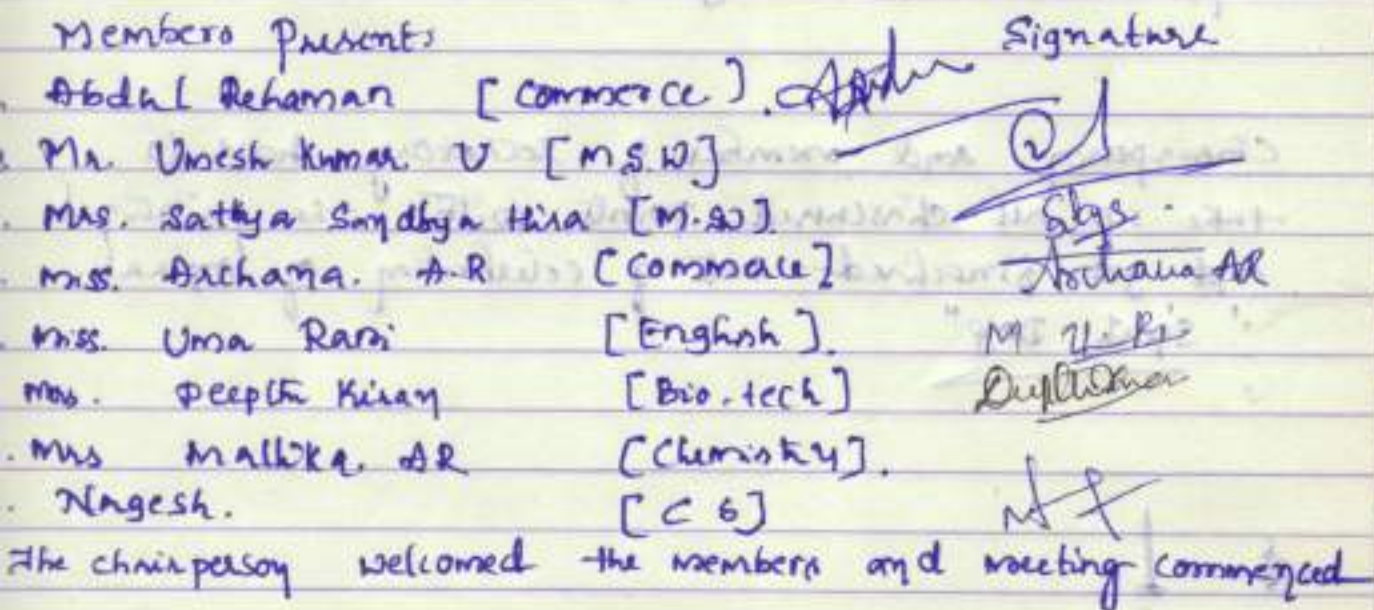 Members Present: Signature
Abdul Rehaman [Commerce].
Mr. Umesh Kumar. U [M.S.W]
Mrs. Sathya Sandhya Hira [M.SW].
Miss. Archana. A.R [Commerce] Archana AR
Miss. Uma Rani [English].
Mrs. Deepthi Kiran [Bio.tech]
Mrs Mallika. AR [Chemistry].
Nagesh. [C S]
The chairperson welcomed the members and meeting commenced